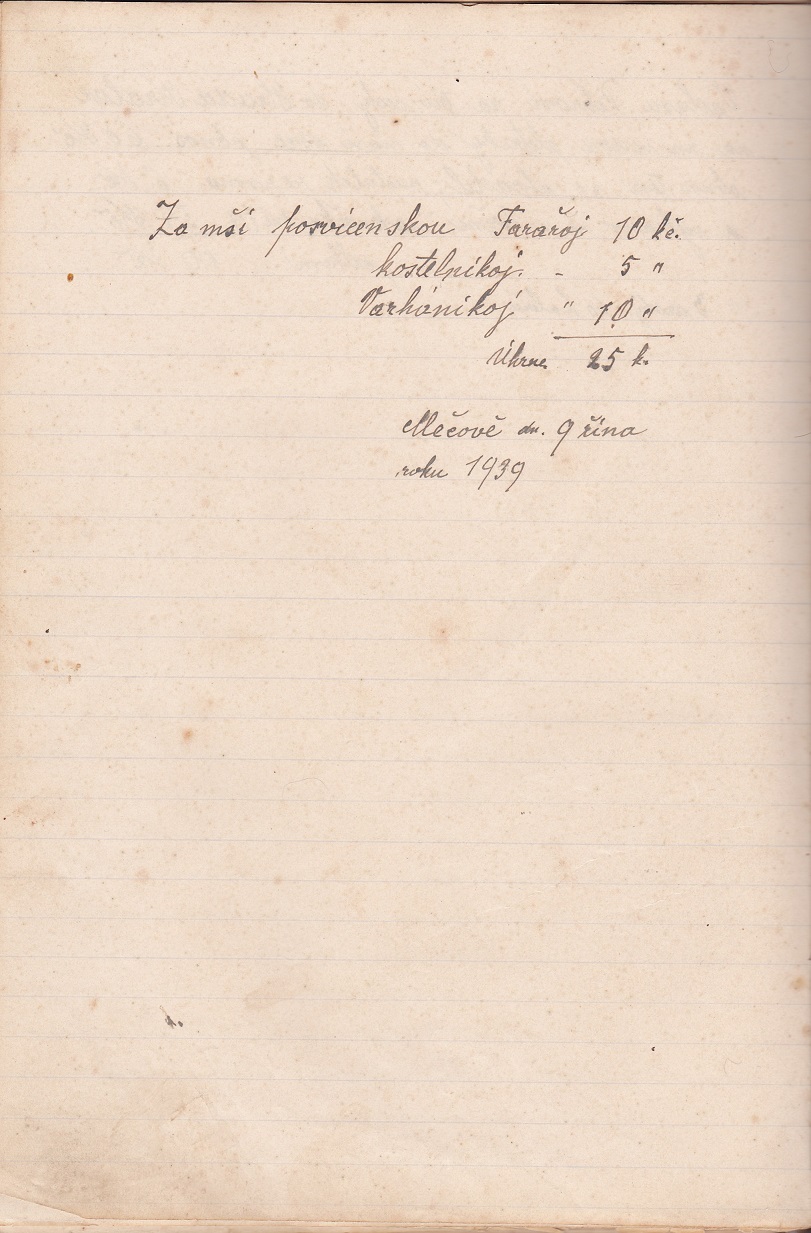 Za mší posvícenskou Farařoj 10 kč.
kostelníkoj. - 5 "
Varhánikoj " 10 "
Úhrne 25 k.
Mečově dn. 9 řína
roku 1939